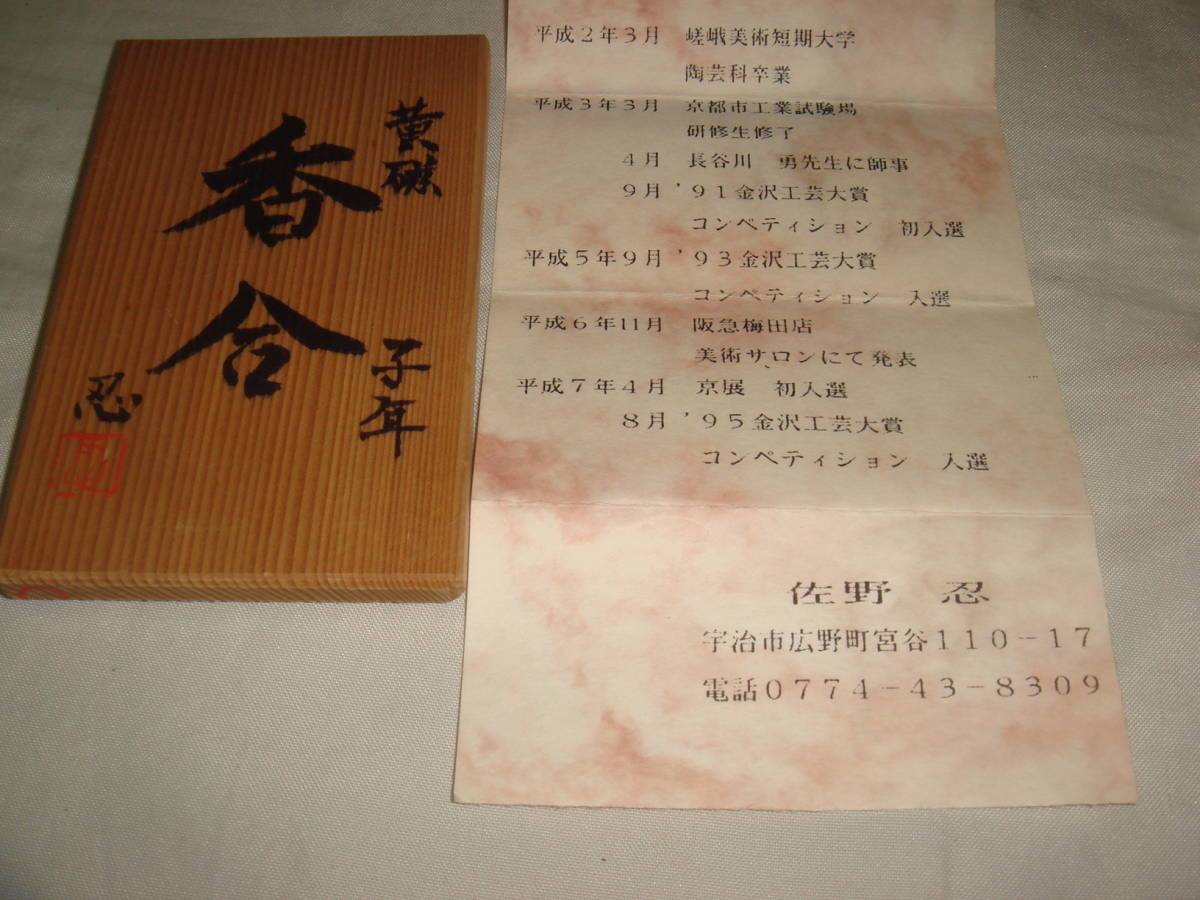 黄磁
香合
子年
忍
平成2年3月 嵯峨美術短期大学
陶芸科卒業
平成3年3月 京都市工業試験場
研修生修了
4月 長谷川 勇先生に師事
9月 '91金沢工芸大賞
コンペティション 初入選
平成5年9月 '93金沢工芸大賞
コンペティション 入選
平成6年11月 阪急梅田店
美術サロンにて発表
平成7年4月 京展 初入選
8月 '95金沢工芸大賞
コンペティション 入選
佐野 忍
宇治市広野町宮谷110-17
電話0774-43-8309